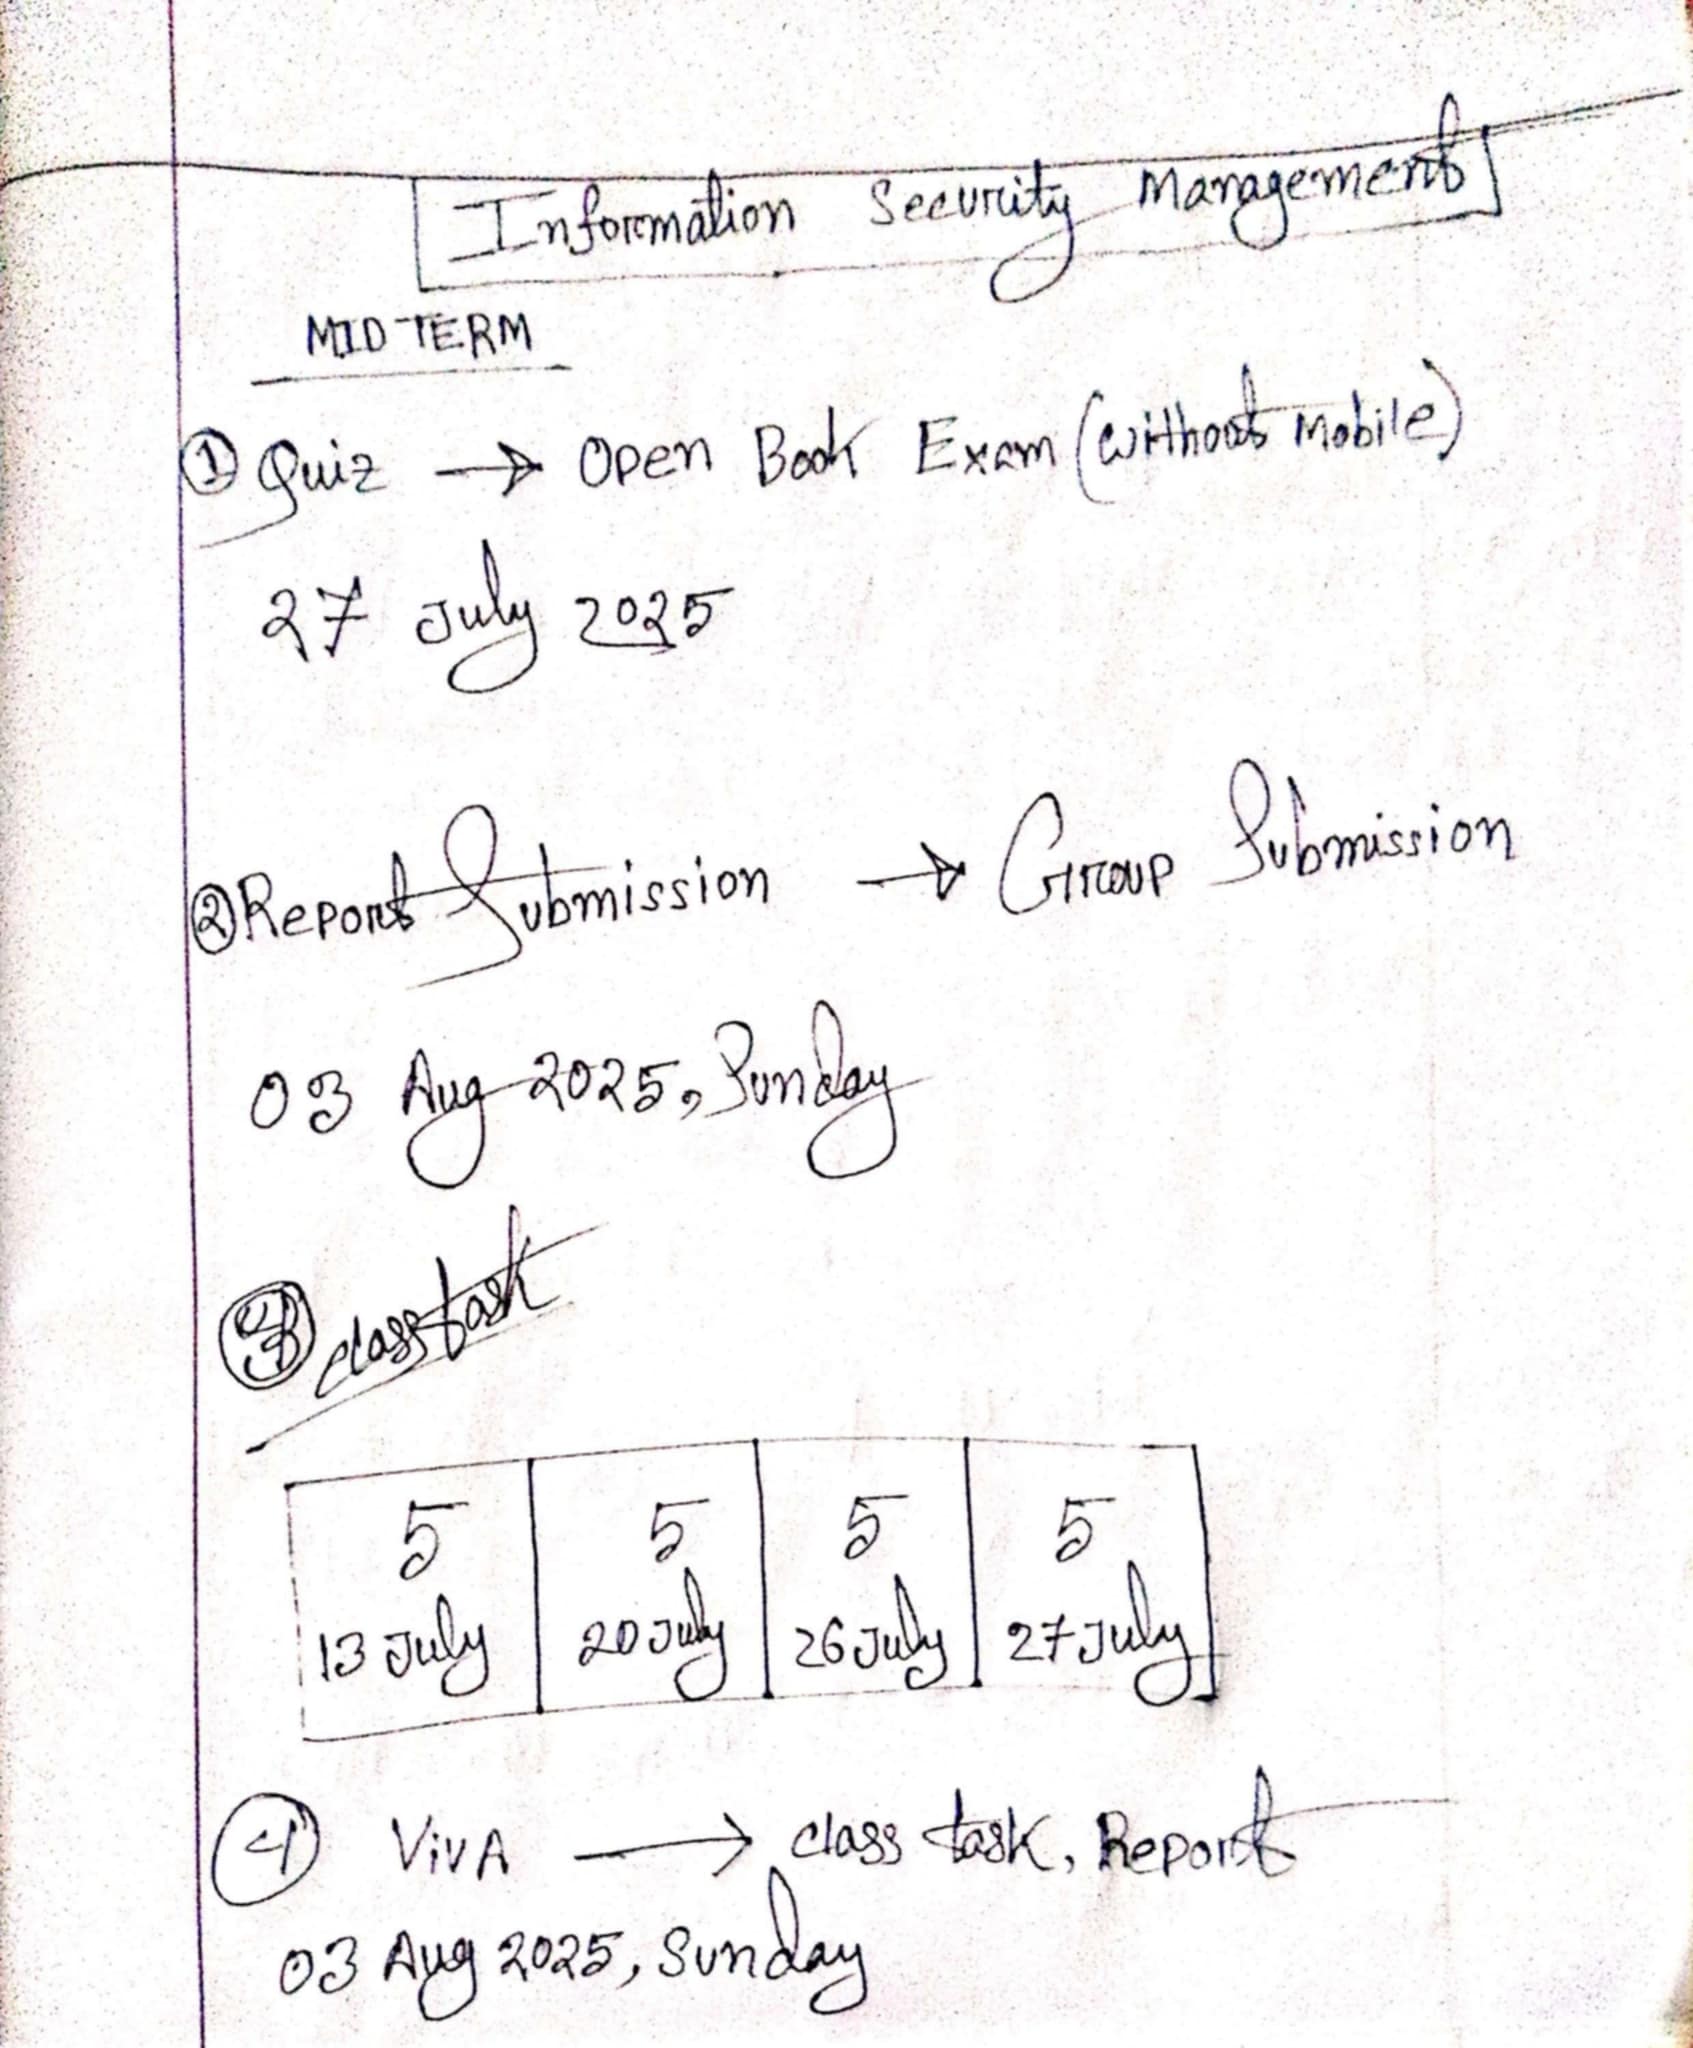 Information Security Management
MID TERM
① Quiz → Open Book Exam (without Mobile)
27 July 2025
② Report Submission → Group Submission
03 Aug 2025, Sunday
③ class task
5 5 5 5
13 July 20 July 26 July 27 July
④ VivA → class task, Report
03 Aug 2025, Sunday